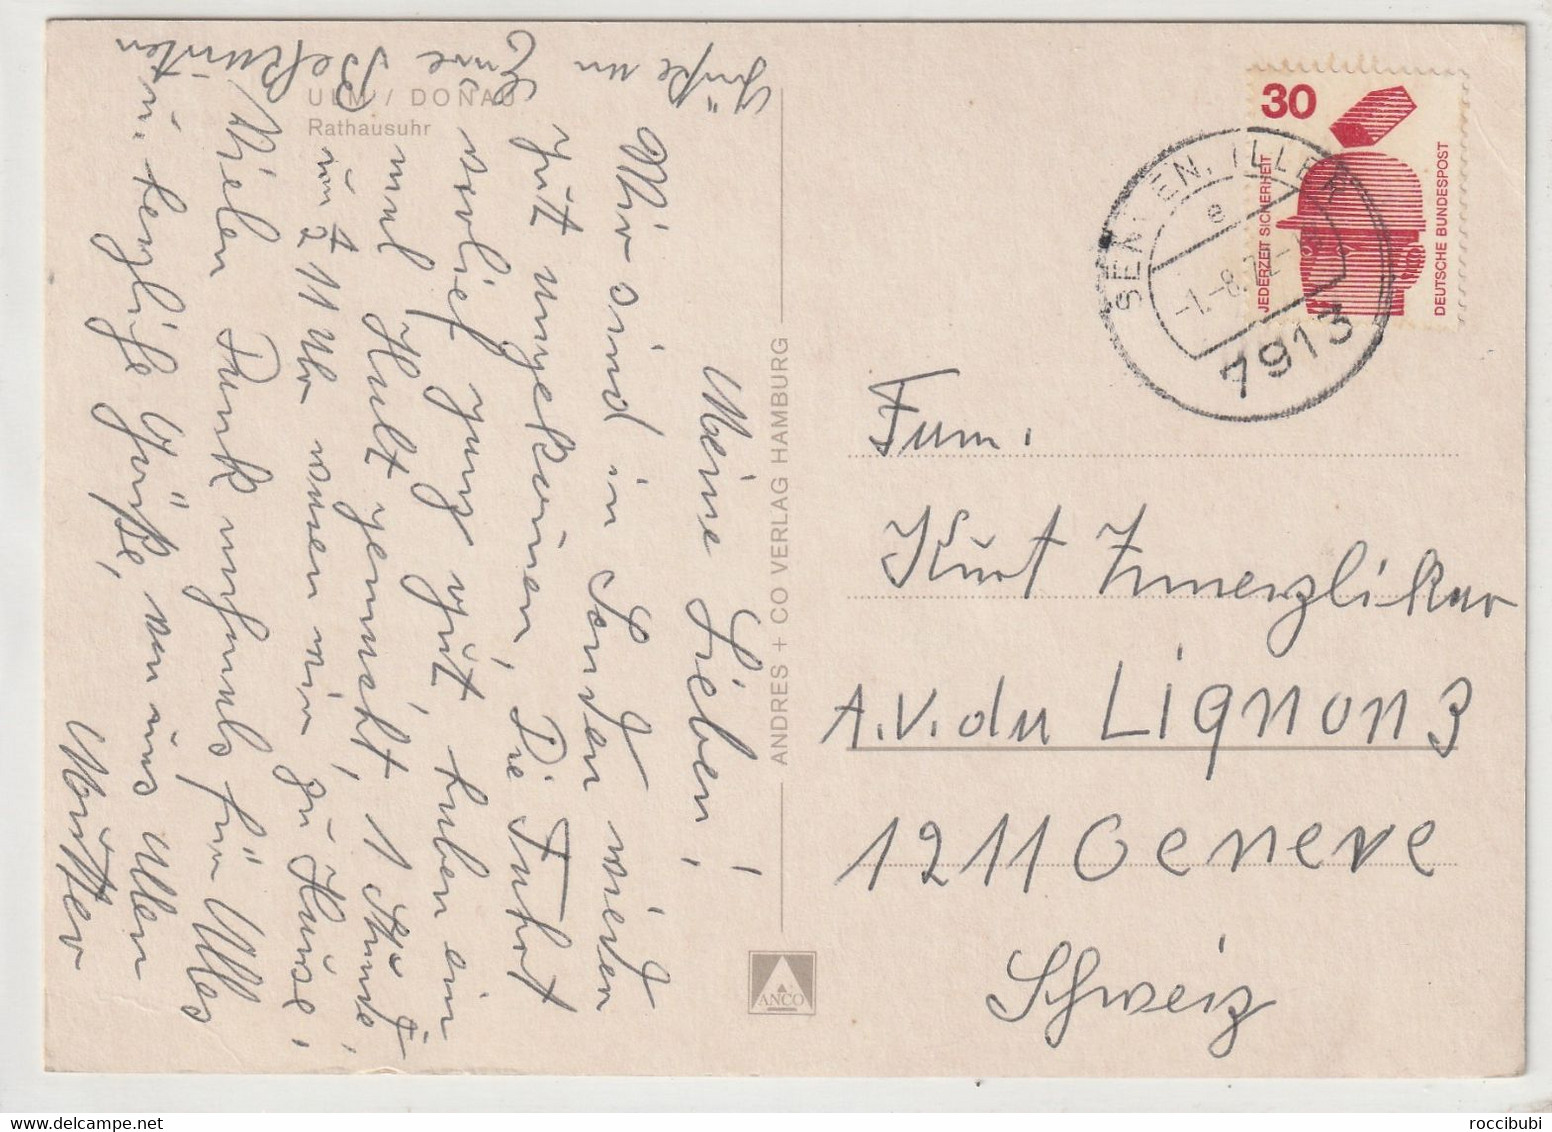 ULM / DONAU
Rathausuhr
Meine Lieben!
Wir sind in Senden wieder
gut angekom̄en, Die Fahrt
verlief ganz gut, haben ein
mal Halt gemacht, 1 Stunde,
um ½ 11 Uhr waren wir zu Hause,
Vielen Dank nochmals für Alles
u. herzliche Grüße, von uns Allen
Mutter
Grüße an
Eure Bekan̄ten
ANDRES + CO VERLAG HAMBURG
ANCO
30
JEDERZEIT SICHERHEIT
DEUTSCHE BUNDESPOST
e
-1.-8.72-
7913
Fam.
Kurt Zimerzlikar
A.V. du Lignon 3
1211 Geneve
Schweiz
roccibubi